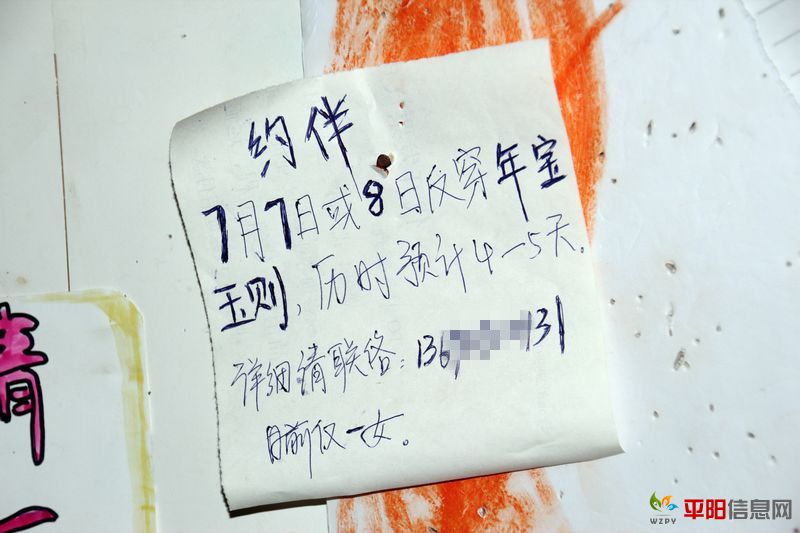 约伴
7月7日或8日反穿年宝
玉则，历时预计4—5天。
详细请联络：136 131
目前仅一女。
青
WZPY 平阳信息网